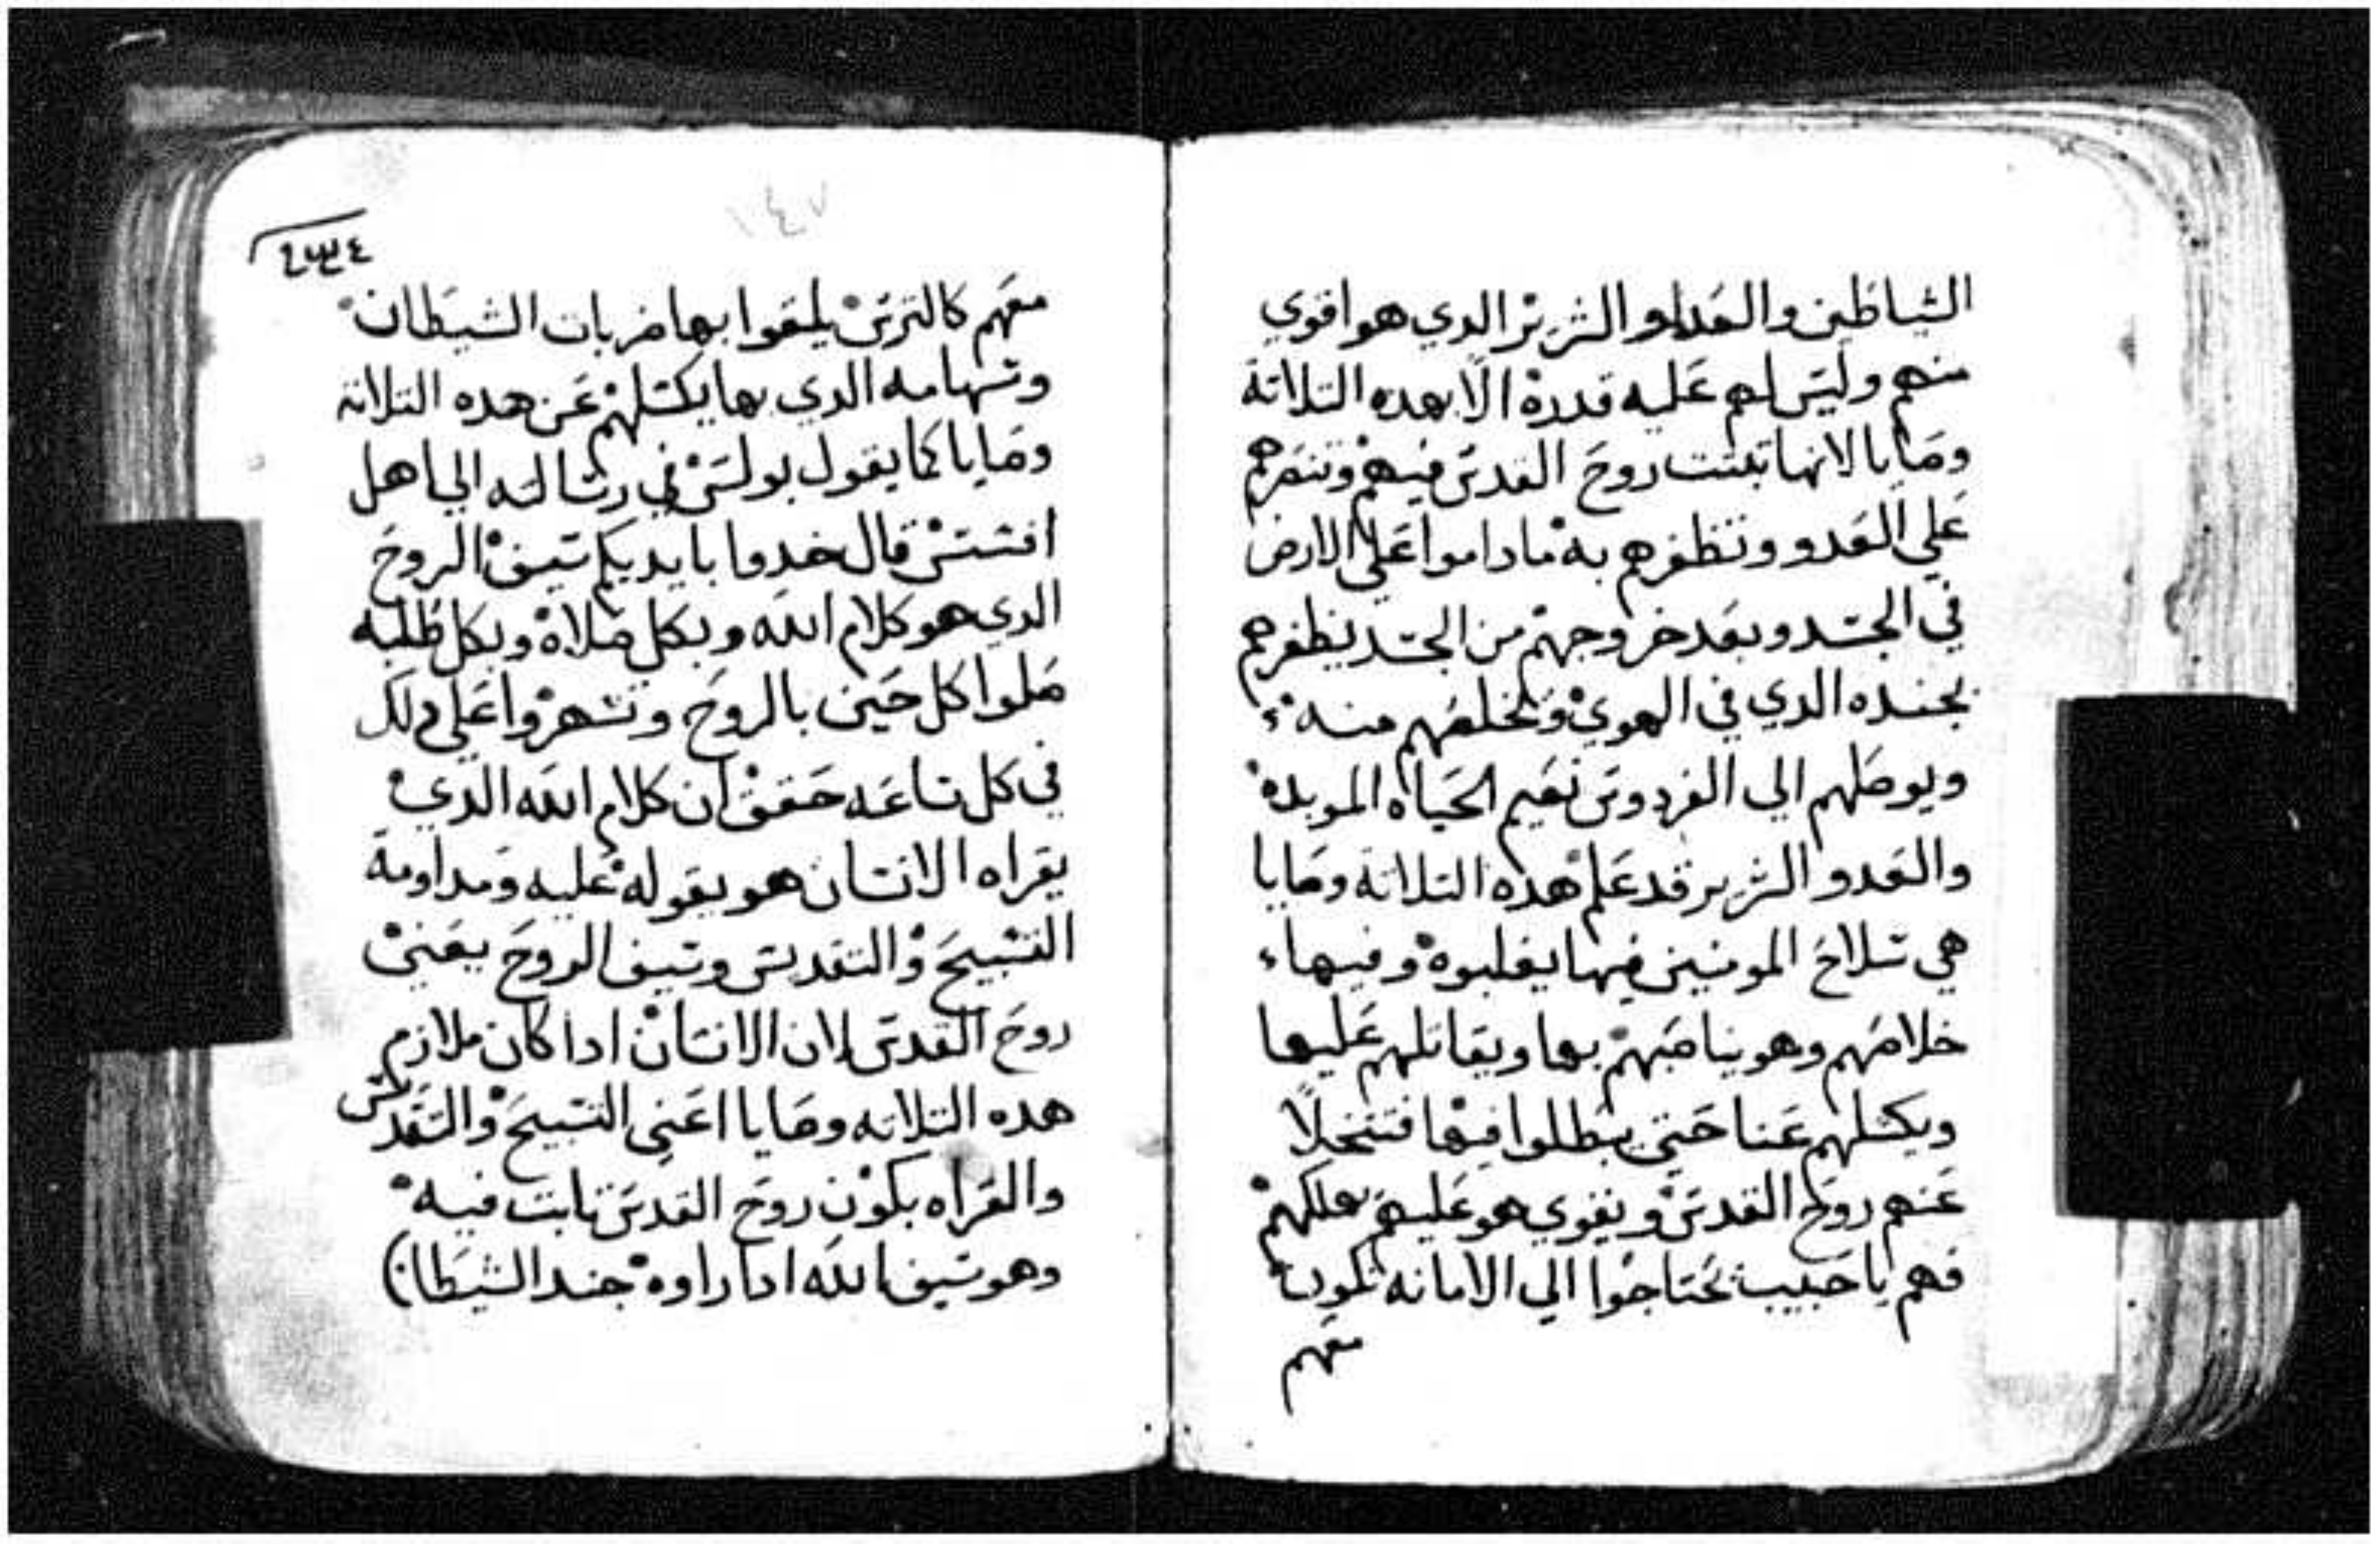 الشياطين والعداو الشرير الدي هو اقوي
منهم وليس لهم عليه قدرة الا بهده التلاتة
وصايا لانها تبتت روح القدس فيهم وتنصرهم
علي العدو وتظفرهم به ما داموا علي الارض
في الجسد وبعد خروجهم من الجسد يظفرهم
بجنده الدي في الهوي وتخلصهم منه
ويوصلهم الي الفردوس نعيم الحياه الموبده
والعدو الشرير قد علم هده التلاتة وصايا
هي سلاح المومنين فيها يغلبوه وفيها
خلاصهم وهو يناصبهم بها ويقاتلهم عليها
ويكسلهم عنا حتي يبطلوا فيها فتتخلا
عنهم روح القدس ويقوي هو عليهم يهلكهم
فهم يا حبيب يحتاجوا الي الامانه تكون
معهم
١٤٧
٤٣٤
معهم كالترس يلتقوا بها ضربات الشيطان
وسهامه الدي بها يكسلهم عن هده التلاتة
وصايا كما يقول بولس في رسالته الي اهل
افسس قال خدوا بايديكم سيف الروح
الدي هو كلام الله وبكل صلاة وبكل طلبه
صلوا كل حين بالروح وتسهروا علي دلك
في كل ساعه حقق ان كلام الله الدي
يقراه الانسان هو يقوله عليه ومداومة
التسبيح والتقديس وسيف الروح يعني
روح القدس لان الانسان ادا كان ملازم
هده التلاته وصايا اعني التسبيح والتقديس
والقراه يكون روح القدس تابت فيه
وهو سيف الله ادا راوه جند الشيطان